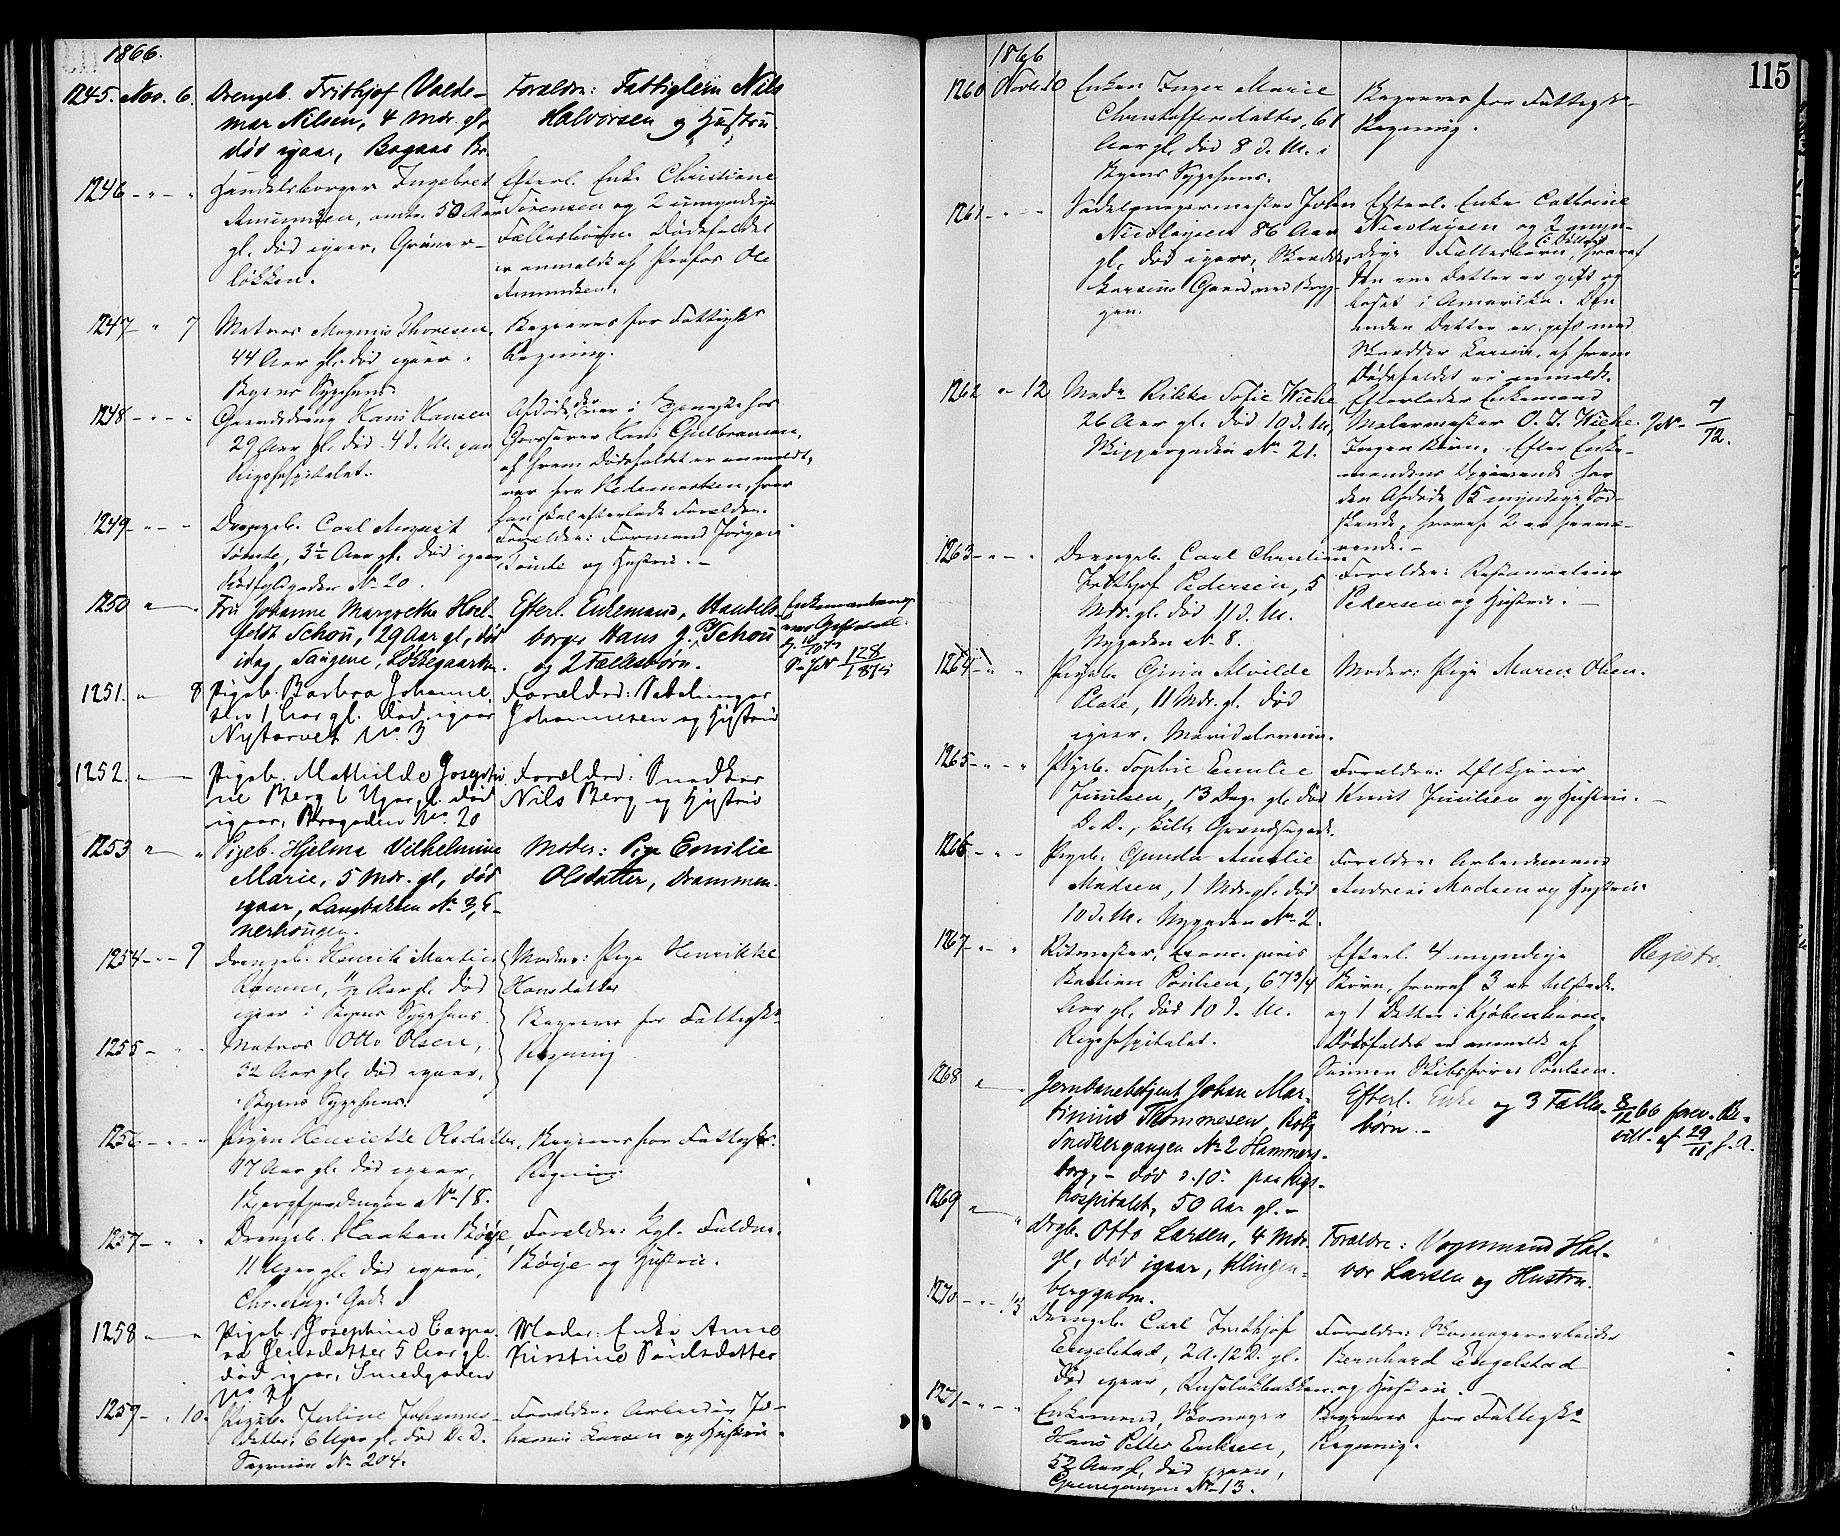 1866.
1245. Nov. 6. Drengeb. Frithjof Valde-
mar Nilsen, 4 Mdr. gl.
død igaar,
Forældre: Fattiglem Nils
Halvorsen og Hustru
1246 - " - "
Handelsborger Ingebret
Amundsen, omtr. 50 Aar
gl. død igaar, Grüner-
løkken.
Efterl. Enke Christiane
Sørensen og 2 umyndige
Fællesbørn. Dødsfaldet
er anmeldt af Ole
Amundsen.
1247 - " 7
Matros Magnus Thoresen,
44 Aar gl. død igaar.
Byens Sygehuus.
Begraves for Fattigks
Regning.
1248 - " - "
Gaardsdreng Hans Hansen
29 Aar gl. død 4 d. M. paa
Rigshospitalet.
Afdøde, der var i Tjeneste hos
Grosserer Hans Gulbransen,
af hvem Dødsfaldet er anmeldt,
var fra Hedemarken, hvor
han skal efterlade Forældre.
1249 - " - "
Drengeb. Carl August
Tømte, 3½ Aar gl. død igaar
Rødfyldgaden No 20.
Forældre: Formand Jørgen
Tømte og Hustru. -
1250 " - "
Fru Johanne Margrethe Horb-
feldt Schou, 29 Aar gl, død
idag, Saugene, Løkkegaarden.
Efterl. Enkemand, Handels-
borger Hans J. Schou
og 2 Fællesbørn.
128
1251. " 8
Pigeb. Barbra Johanne
1 Aar gl. død igaar
Nytorvet No. 3
Forældre: Sadelmager
Johannesen og Hustru
1252. " - "
Pigeb. Mathilde Josephi-
ne Berg 6 Uger gl. død
igaar, No. 20
Forældre: Snedker
Nils Berg og Hustru
1253 " - "
Pigeb. Hjelma Vilhelmine
Marie, 5 Mdr. gl, død
igaar, Langbakken No 3, E-
nerhougen.
Moder: Pige Emilie
Olsdatter, Drammen.
1254 - " - 9
Drengeb. Henrik Martin
Aar gl. død
igaar i Byens Sygehuus.
Moder: Pige Henrikke
Hansdatter
Begraves for Fattigks-
Regning
1255 - " "
Matros Otto Olsen,
32 Aar gl. død igaar,
Byens Sygehuus.
1256 - " - "
Pigen Henriette Olsdatter,
17 Aar gl. død igaar,
No 18.
Begraves for Fattigks.
Regning
1257 - " "
Drengeb. Haakon Bøije,
11 Uger gl. død igaar,
Chr. Aug. Gade
Forældre: Kgl. Fuldm.
Bøije og Hustru.
1258 - "
Pigeb. Josephine Caspa-
ra Jensdatter 5 Aar gl.
død igaar, Smedgaden
Moder: Enke Anne
Kirstine Poulsdatter
1259 - " 10.
Pigeb. Juline Johannes-
datter, 6 Uger gl. død D. D.
No 204.
Forældre: Arbeider Jo-
hannes Larsen og Hustru.
115
1866
1260 Novbr 10
Enken Inger Marie
Christoffersdatter, 61
Aar gl. død 8 d. M. i
Byens Sygehuus.
Begraves for Fattigks-
Regning.
1261 - " - "
Sadelmagermester Johan
Nicolaysen 86 Aar
gl. død igaar,
Larsens Gaard ved Bryg-
gen.
Efterl. Enke Cathrine
Nicolaysen og 2 myn-
dige Fællesbørn, (Døttre) hvoraf
den ene Datter er gift og
boset i Amerika. Den
anden Datter er gift med
Skrædder Larsen, af hvem
Dødsfaldet er anmeldt.
1262 " - 12
Madm Rikka Sofie Wiche
26 Aar gl. død 10 d. M.,
Skippergaden No 21.
Efterlader Enkemand
Malermester O. J. Wiche.
Ingen Børn. Efter Enke-
mandens Opgivende har
den Afdøde 5 myndige Sød-
skende, hvoraf 2 er fravæ-
rende. -
7/72.
1263 - " - "
Drengeb. Carl Christian
Frithjof Pedersen, 5
Mdr. gl. død 11 d. M.
Nygaden No 8.
Forældre: Restaurateur
Pedersen og Hustru. -
1264 - " "
Pigeb. Gina Alvilde
Plate, 11 Mdr. gl. død
igaar, Maridalsveien.
Moder: Pige Maren Olsen.
1265 - " - "
Pigeb. Sophie Emilie
Juulsen, 13 Dage gl. død
D. D., Lille Grændsegade.
Forældre:
Knut Juulsen og Hustru. -
1266 - " - "
Pigeb. Gunda Amalie
Madsen, 1 Mdr. gl. død
10 d. M. Nygaden No 2.
Forældre: Arbeidsmand
Andreas Madsen og Hustru.
1267 - " "
Ritmester,
Bastian Poulsen, 67 3/4
Aar gl. død 10 d. M.
Rigshospitalet.
Efterl. 4 myndige
Børn, hvoraf 3 er tilstede
og 1 Datter i Kjøbenhavn.
Dødsfaldet er anmeldt af
Sønnen Skibsfører Poulsen.
Registr.
1268 " - "
Jernbanebetjent Johan Mar-
tinius Thommesen, Bolig
Snedkergangen No 2 Hammers-
borg, - død d. 10. paa Rigs-
hospitalet, 50 Aar gl. -
Efterl. Enke og 3 Fælles-
børn. -
8/12 66 prov. Be-
vill. af 29/11 s. A.
1269 " - "
Drgb. Otto Larsen, 4 Mdr.
gl, død igaar, Klingen-
berggaden.
Forældre: Vognmand Hal-
vor Larsen og Hustru.
1270 - " - 13
Drengeb. Carl Frithjof
Engelstad, 2 A. 12 D. gl.
død igaar, Ruseløkbakken
Forældre: Skomagerarbeider
Bernhard Engelstad
og Hustru.
1271 - " - "
Enkemand, Skomager
Hans Petter Eriksen,
52 Aar gl. død igaar,
Grændsegangen No 13.
Begraves for Fattigks-
Regning.